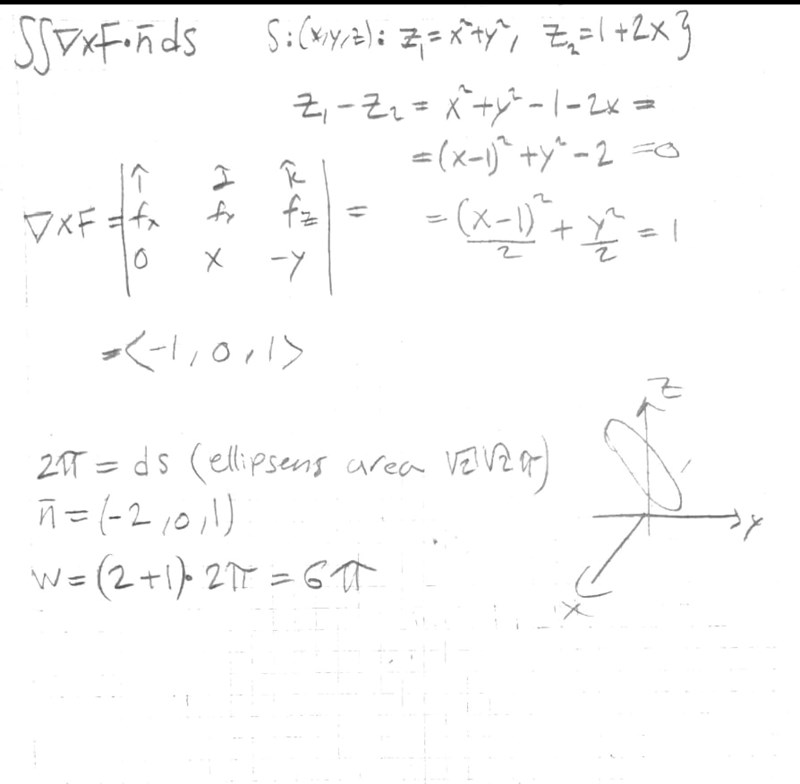 ∬∇×F·n̄ ds    S:(x,y,z): z₁=x²+y², z₂=1+2x}
z₁-z₂ = x²+y²-1-2x =
= (x-1)²+y²-2 =0
= (x-1)²/2 + y²/2 = 1
∇×F = | î ĵ k̂ |
| fx fy fz | =
| 0 x -y |
= <-1, 0, 1>
2π = ds (ellipsens area √2√2π)
n̄ = (-2, 0, 1)
w = (2+1)·2π = 6π
z
y
x